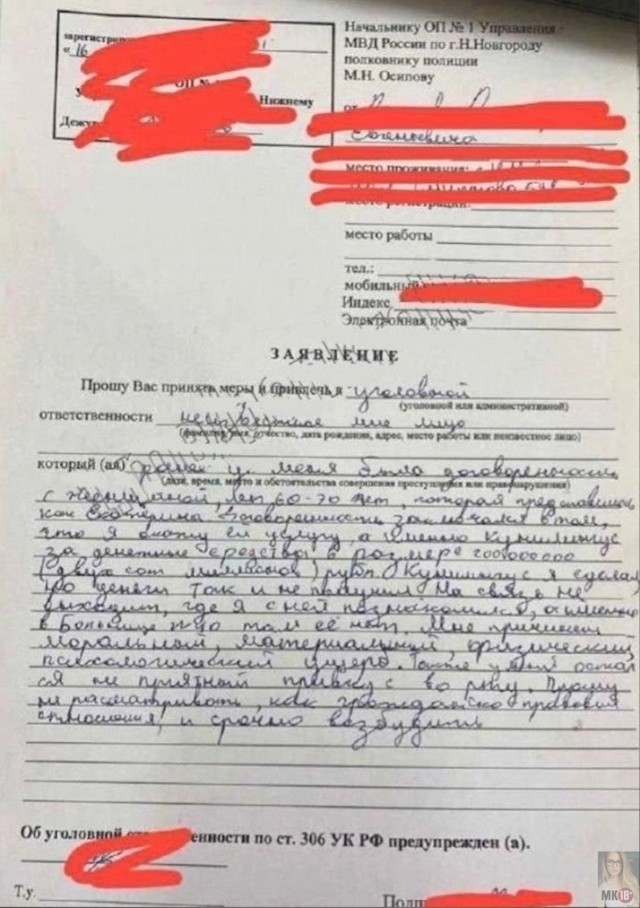 зарегистрир
« 16
ОП №
Нижнему
Дежу
Начальнику ОП № 1 Управления
МВД России по г.Н.Новгороду
полковнику полиции
М.Н. Осипову
от
Евгеньевича
место проживания:
место регистрации:
место работы
тел.:
мобильный
Индекс
Электронная почта
ЗАЯВЛЕНИЕ
Прошу Вас принять меры и привлечь к уголовной
(уголовной или административной)
ответственности неизвестное мне лицо
(фамилия, имя, отчество, дата рождения, адрес, место работы или неизвестное лицо)
который (ая) ранее у меня была договоренность
(дата, время, место и обстоятельства совершения преступления или правонарушения)
с женщиной, лет 60-70 лет, которая представилась
как Екатерина договоренность заключался в том,
что я окажу ей услугу, а именно Кунилингус
за денежные средства в размере 200000000
(двух сот миллионов) рубл. Кунилингус я сделал
но деньги так и не получил На связь не
выходит, где я с ней познакомился, а именно
в Больнице что там её нет. Мне причинен
моральный, материальный, физический,
психологический ущерб. Также у меня остал
ся не приятный привкус во рту. Прошу
не расматривать, как гражданско правовые
отношения, и срочно возбудить
Об уголовной ответственности по ст. 306 УК РФ предупрежден (а).
Т.у.
Подп
МК18+